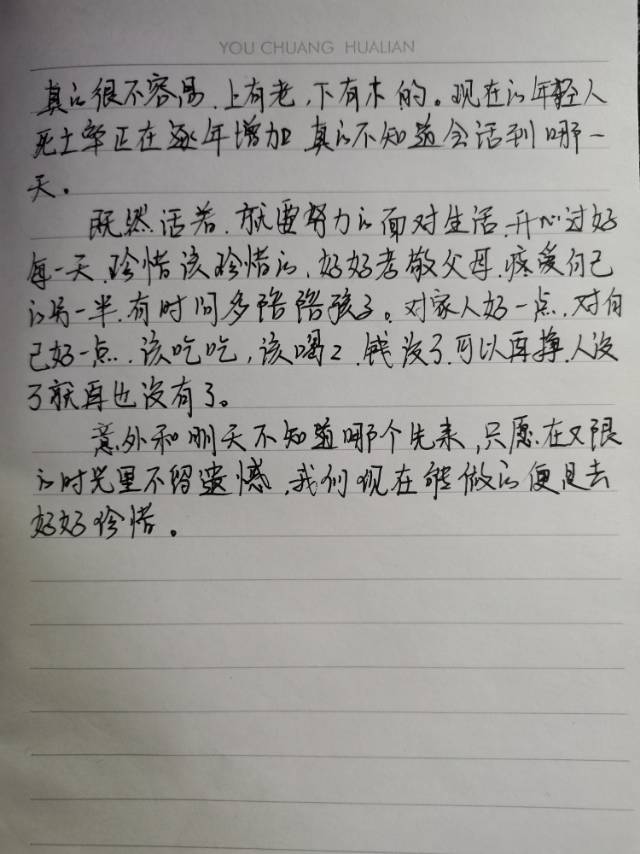 YOU CHUANG HUALIAN
真的很不容易、上有老、下有木的。现在的年轻人
死亡率正在逐年增加 真的不知道会活到哪一
天。
既然活着、就要努力的面对生活、开心过好
每一天、珍惜该珍惜的、好好孝敬父母、疼爱自己
的另一半、有时间多陪陪孩子。对家人好一点、对自
己好一点、该吃吃,该喝2、钱没了可以再挣、人没
了就再也没有了。
意外和明天不知道哪个先来,只愿在又限
的时光里不留遗憾、我们现在能做的便是去
好好珍惜。